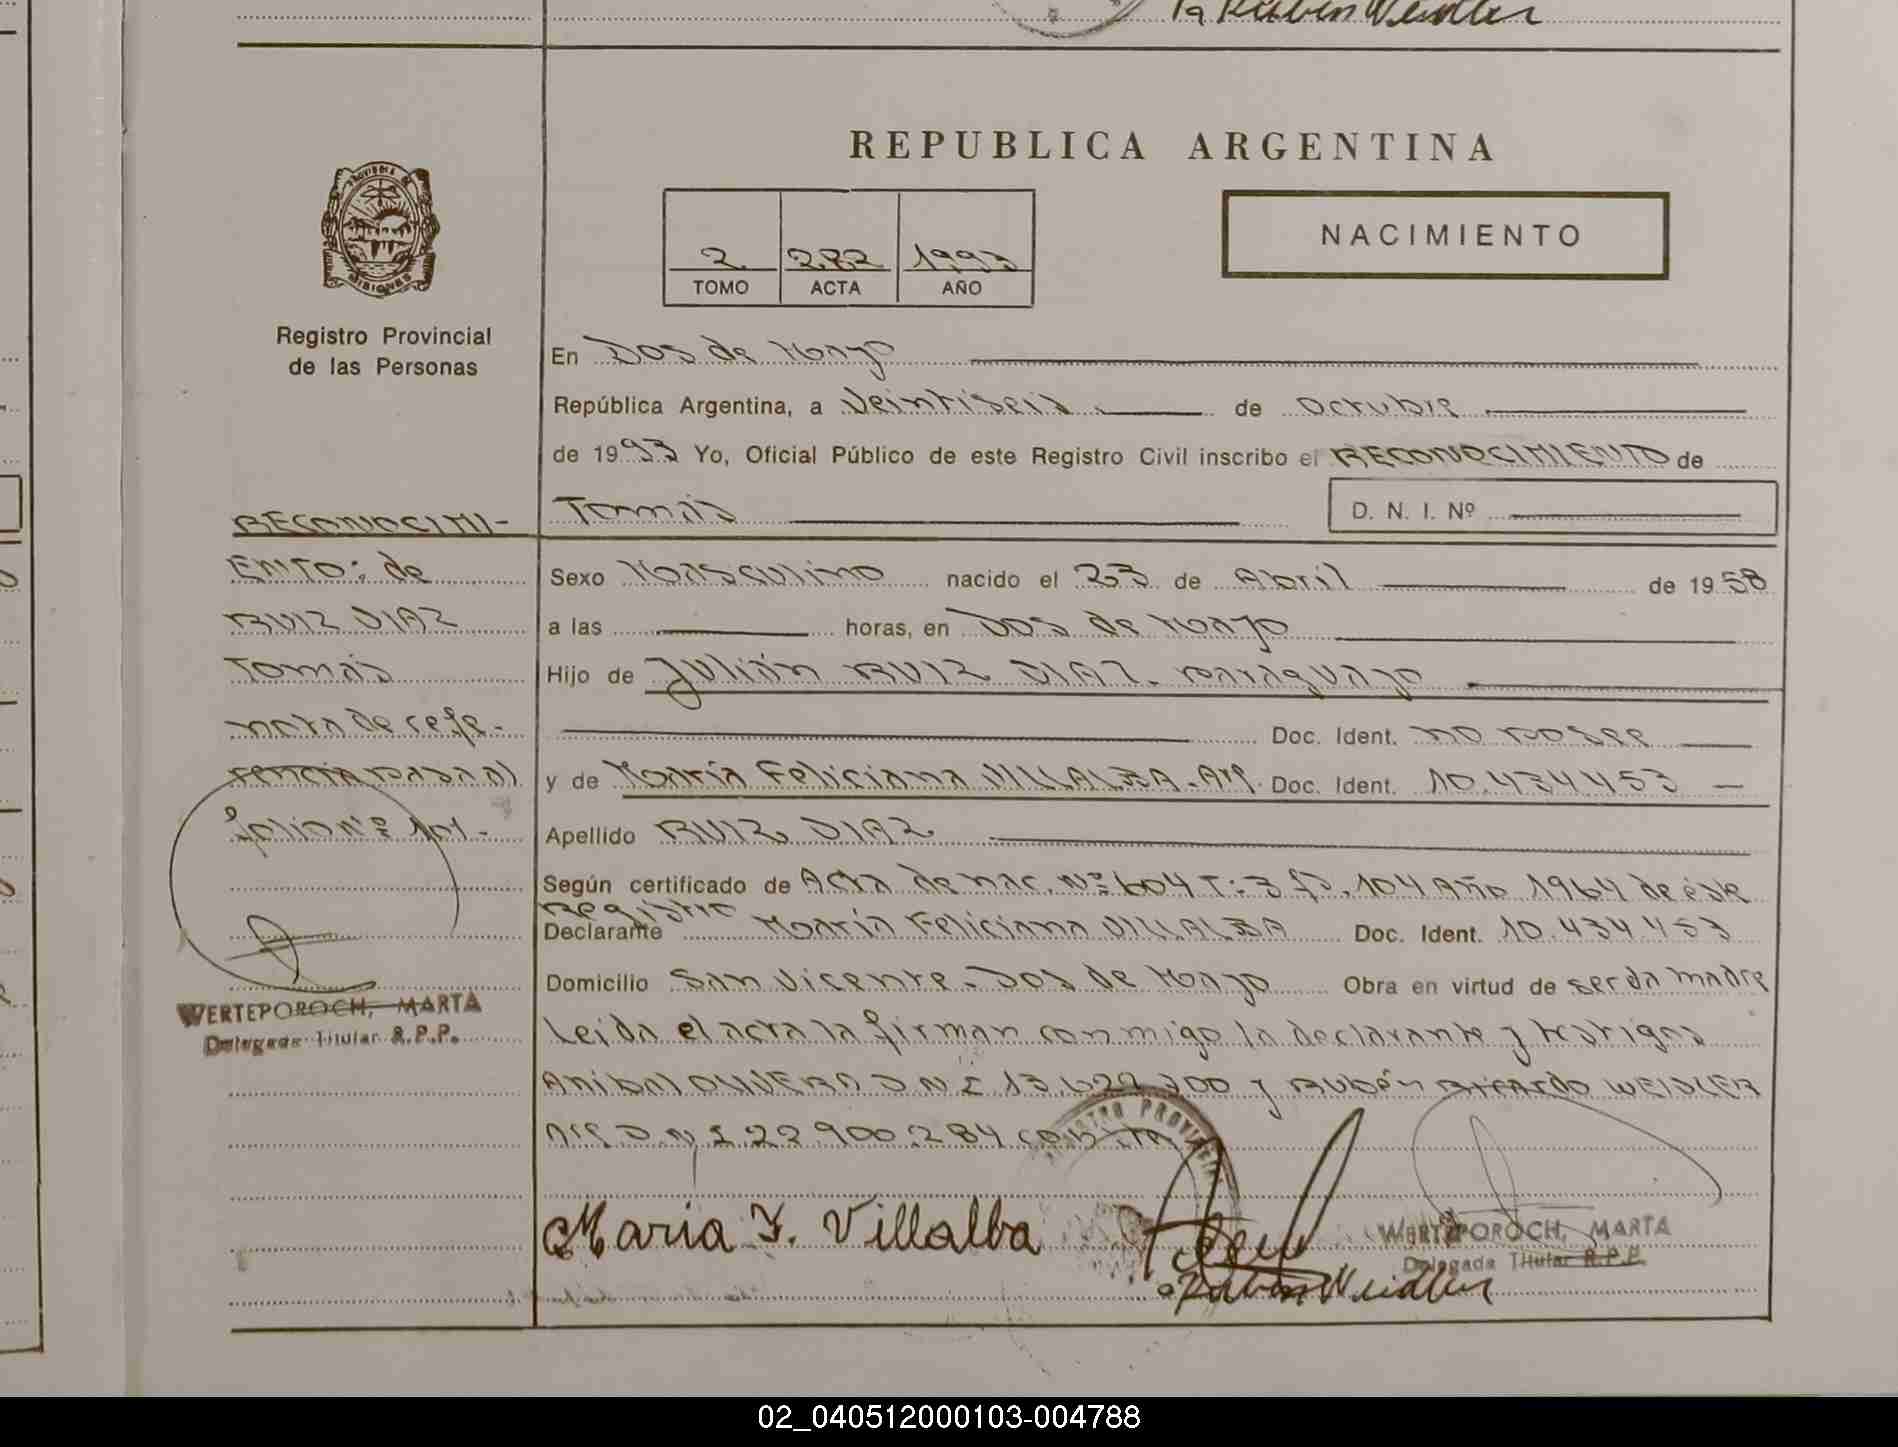 Rubén Weidler
REPUBLICA ARGENTINA
PROVINCIA DE
MISIONES
2 282 1993
TOMO ACTA AÑO
NACIMIENTO
Registro Provincial
de las Personas
En Dos de Mayo
República Argentina, a Veintiseis de octubre
de 1993 Yo, Oficial Público de este Registro Civil inscribo el RECONOCIMIENTO de
Tomás D. N. I. Nº
Sexo Masculino nacido el 23 de Abril de 1958
a las horas, en Dos de Mayo
Hijo de Julián RUIZ DIAZ - paraguayo
Doc. Ident. no posee
y de María Feliciana VILLALBA - Arg. Doc. Ident. 10.434.453
Apellido RUIZ DIAZ
Según certificado de Acta de nac. Nº 604 T: 3 fs. 104 Año 1964 de éste
Registro
Declarante María Feliciana VILLALBA Doc. Ident. 10.434.453
Domicilio San Vicente - Dos de Mayo Obra en virtud de ser da madre
Leida el acta la firman conmigo la declarante y testigos
Anibal OLIVERA D N I 13.629.300 y Rubén Ricardo WEIDLER
Arg D N I 22 900.284
RECONOCIMI-
ENTO: de
RUIZ DIAZ
Tomás
nota de refe-
rencia pasa al
folio nº 101.
WERTEPOROCH, MARTA
Delegada Titular R.P.P.
REGISTRO PROVINCIAL
Maria F. Villalba
WERTEPOROCH, MARTA
Delegada Titular R.P.P.
Rubén Weidler
02_040512000103-004788